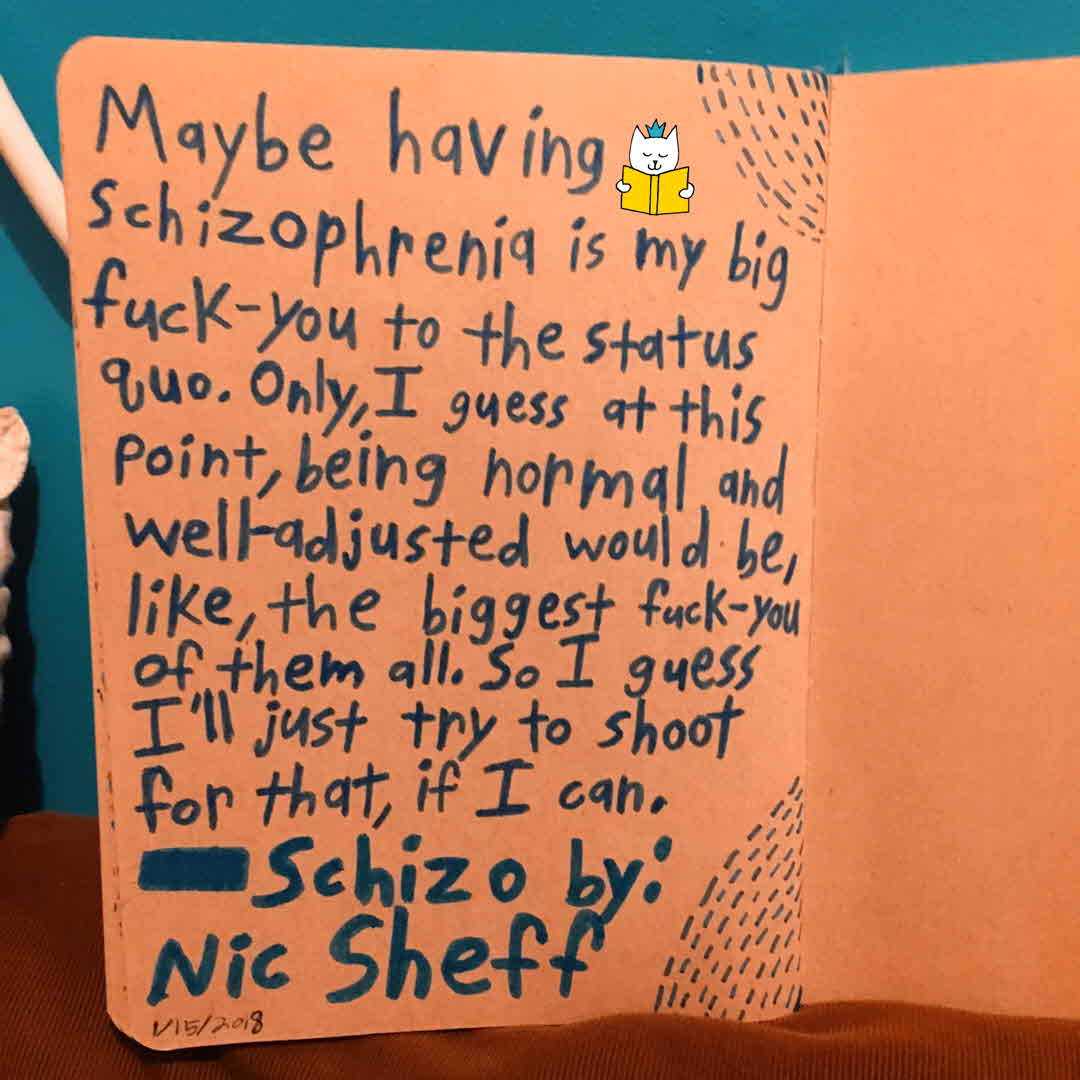 Maybe having
Schizophrenia is my big
fuck-you to the status
quo. Only, I guess at this
point, being normal and
well-adjusted would be,
like, the biggest fuck-you
of them all. So I guess
I'll just try to shoot
for that, if I can.
Schizo by:
Nic Sheff
1/15/2018